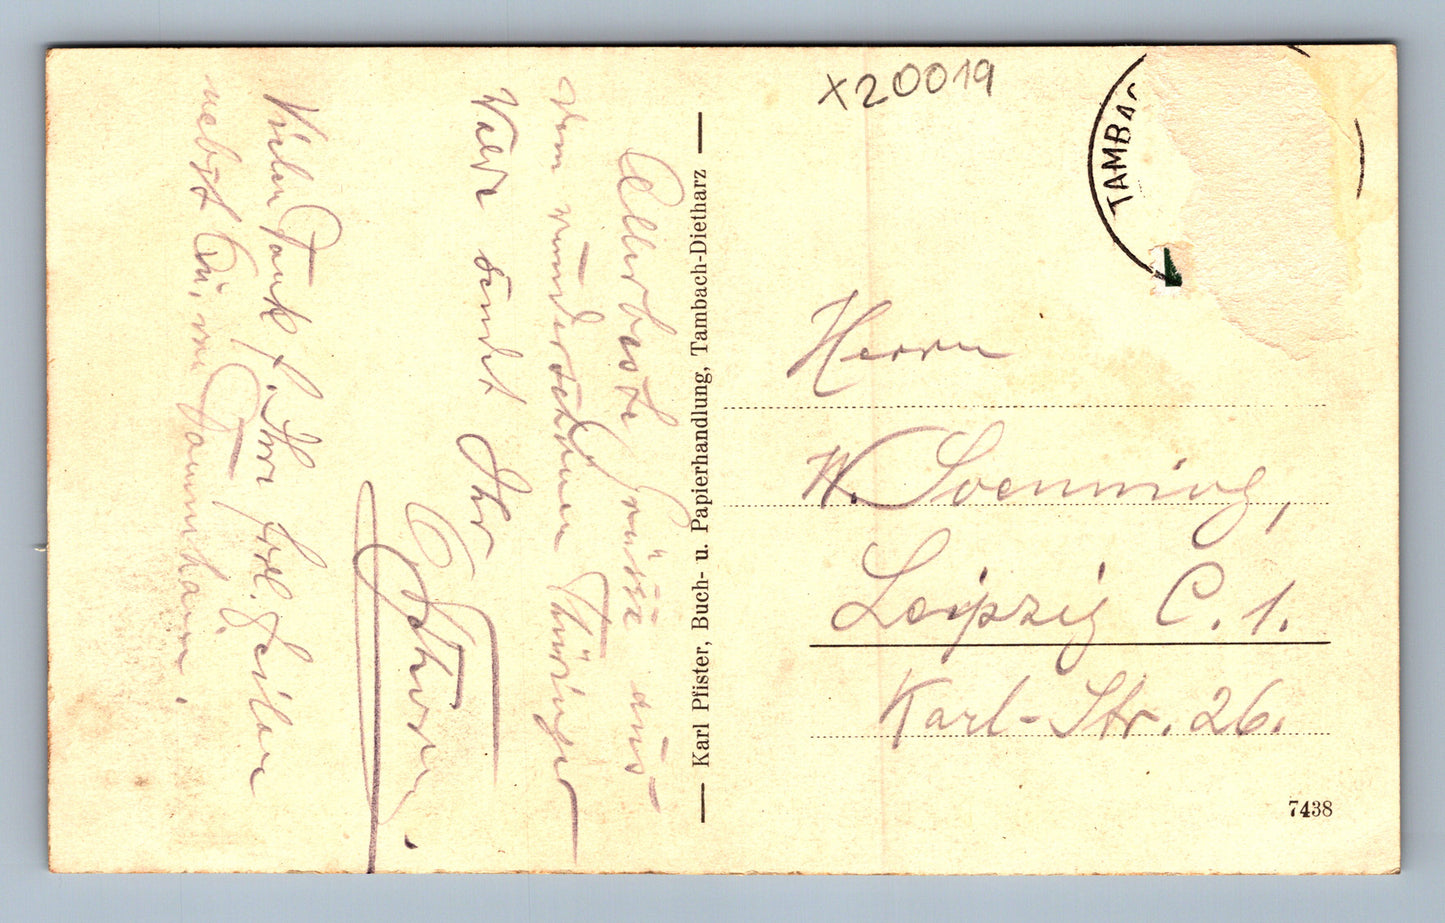 X20019
TAMBAC
Allerbeste Grüsse aus
dem wunderschönen Thüringer
Wald sendet Ihr
Vielen Dank f. Ihre frdl. Zeilen
nebst
— Karl Pfister, Buch- u. Papierhandlung, Tambach-Dietharz —
Herrn
W. Soenning,
Leipzig C. 1.
Karl-Str. 26.
7438